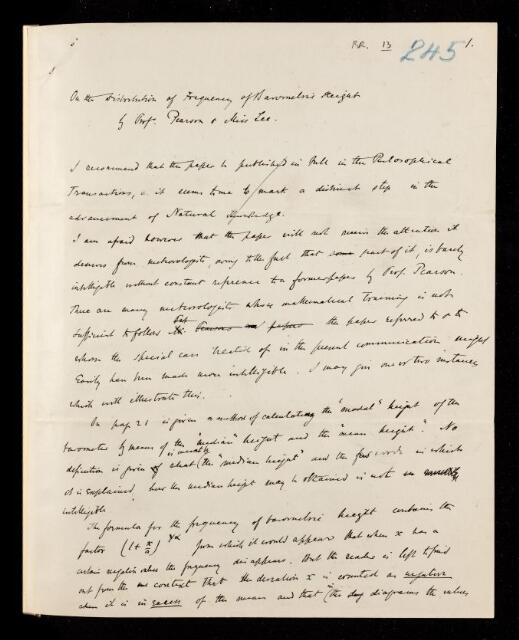 R.R. 13 245 1.
On the Distribution of Frequency of Barometric Height
by Prof. Pearson & Miss Lee.
I recommend that the paper be published in full in the Philosophical
Transactions, as it seems to me to mark a distinct step in the
advancement of Natural Knowledge.
I am afraid however that the paper will not receive the attention it
deserves from meteorologists, owing to the fact that some part of it, is barely
intelligible without constant reference to a former paper by Prof. Pearson.
There are many meteorologists whose mathematical training is not
sufficient to follow the paper referred to & to
whom the special case treated of in the present communication, might
easily have been made more intelligible. I may give one or two instances
which will illustrate this.
On page 21 is given a method of calculating the "modal" height of the
barometer by means of the "median" height and the "mean height". No
definition is given of what is meant by the "median height" and the few words in which
it is explained, how the median height may be obtained is not
intelligible.
The formula for the frequency of barometric height contains the
factor (1 + x/a) γa from which it would appear that when x has a
certain negative value the frequency disappears. But the reader is left to find
out from the context that the deviation x is counted as negative
when it is in excess of the mean and that the diagrams the values